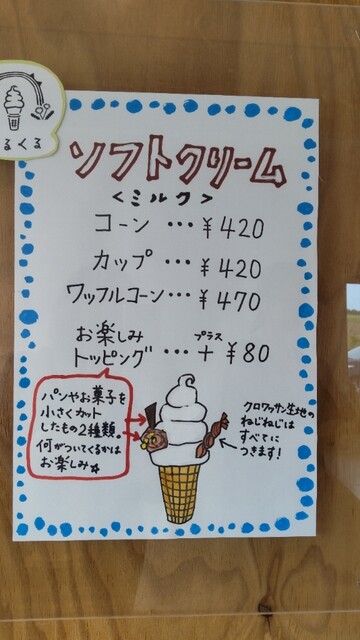 るくる
ソフトクリーム
<ミルク>
コーン…¥420
カップ…¥420
ワッフルコーン…¥470
お楽しみ
トッピング…プラス+¥80
パンやお菓子を
小さくカット
したもの2種類。
何がついてくるかは
お楽しみ☆
クロワッサン生地の
ねじねじは
すべてに
つきます!